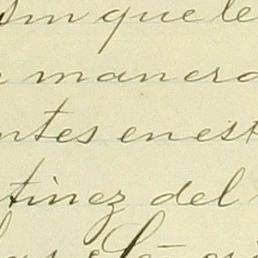 sin que le
manera
ntes en est
tinez del